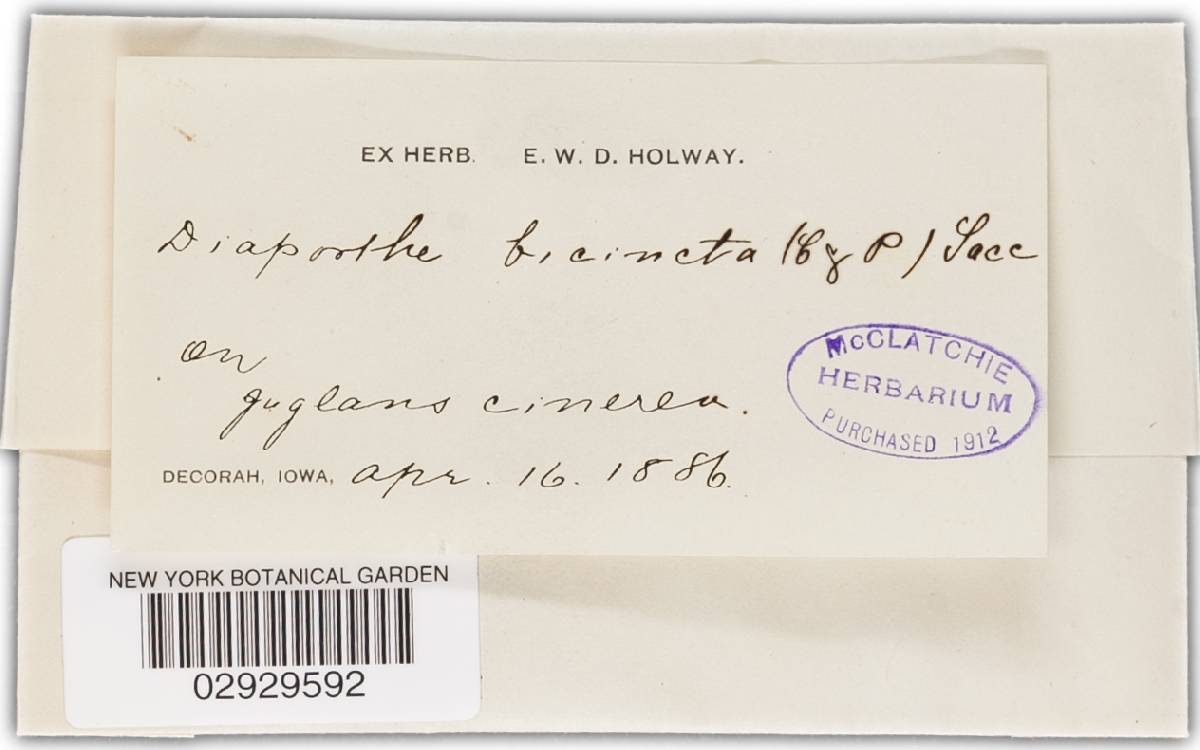 EX HERB. E. W. D. HOLWAY.
Diaporthe bicincta (C & P) Sacc
on
Juglans cinerea.
McCLATCHIE
HERBARIUM
PURCHASED 1912
DECORAH, IOWA, Apr. 16. 1886.
NEW YORK BOTANICAL GARDEN
02929592